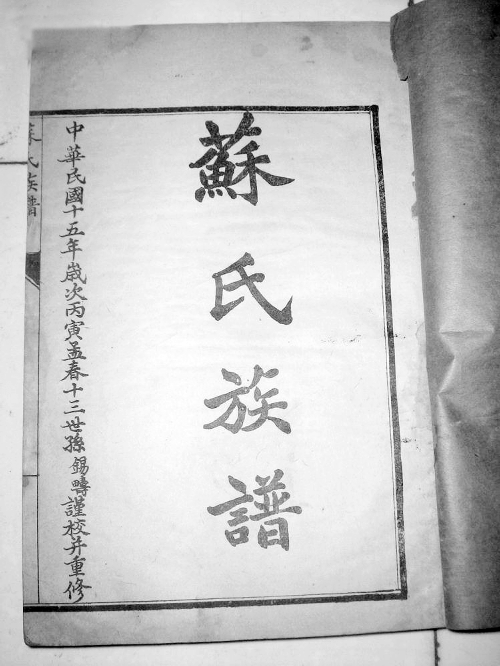 蘇氏族譜
中華民國十五年歲次丙寅孟春十三世孫錫疇謹校并重修
蘇氏族譜